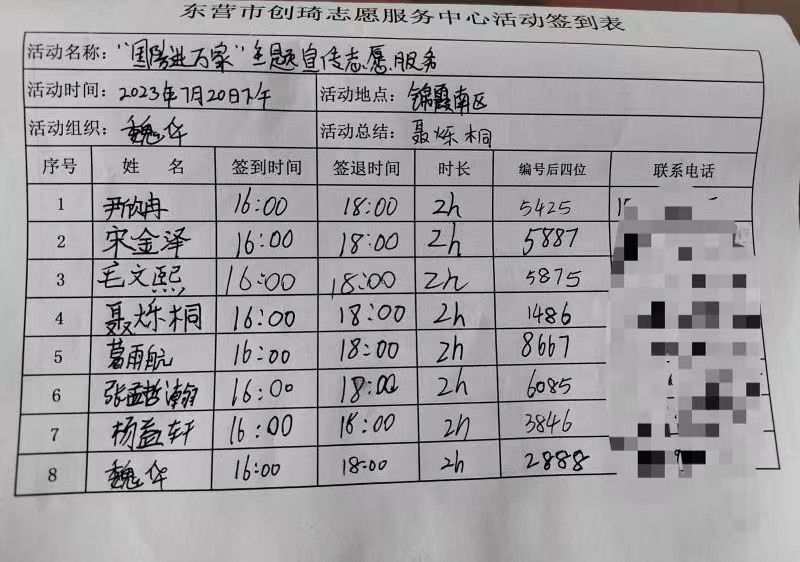 东营市创琦志愿服务中心活动签到表
活动名称：“国防进万家”主题宣传志愿服务
活动时间：2023年7月20日下午 活动地点：锦霞南区
活动组织：魏华 活动总结：聂烁桐
序号 姓 名 签到时间 签退时间 时长 编号后四位 联系电话
1 尹欣冉 16:00 18:00 2h 5425
2 宋金泽 16:00 18:00 2h 5887
3 毛文熙 16:00 18:00 2h 5875
4 聂烁桐 16:00 18:00 2h 1486
5 葛雨航 16:00 18:00 2h 8667
6 张孟哲瀚 16:00 18:00 2h 6085
7 杨益轩 16:00 18:00 2h 3846
8 魏华 16:00 18:00 2h 2888